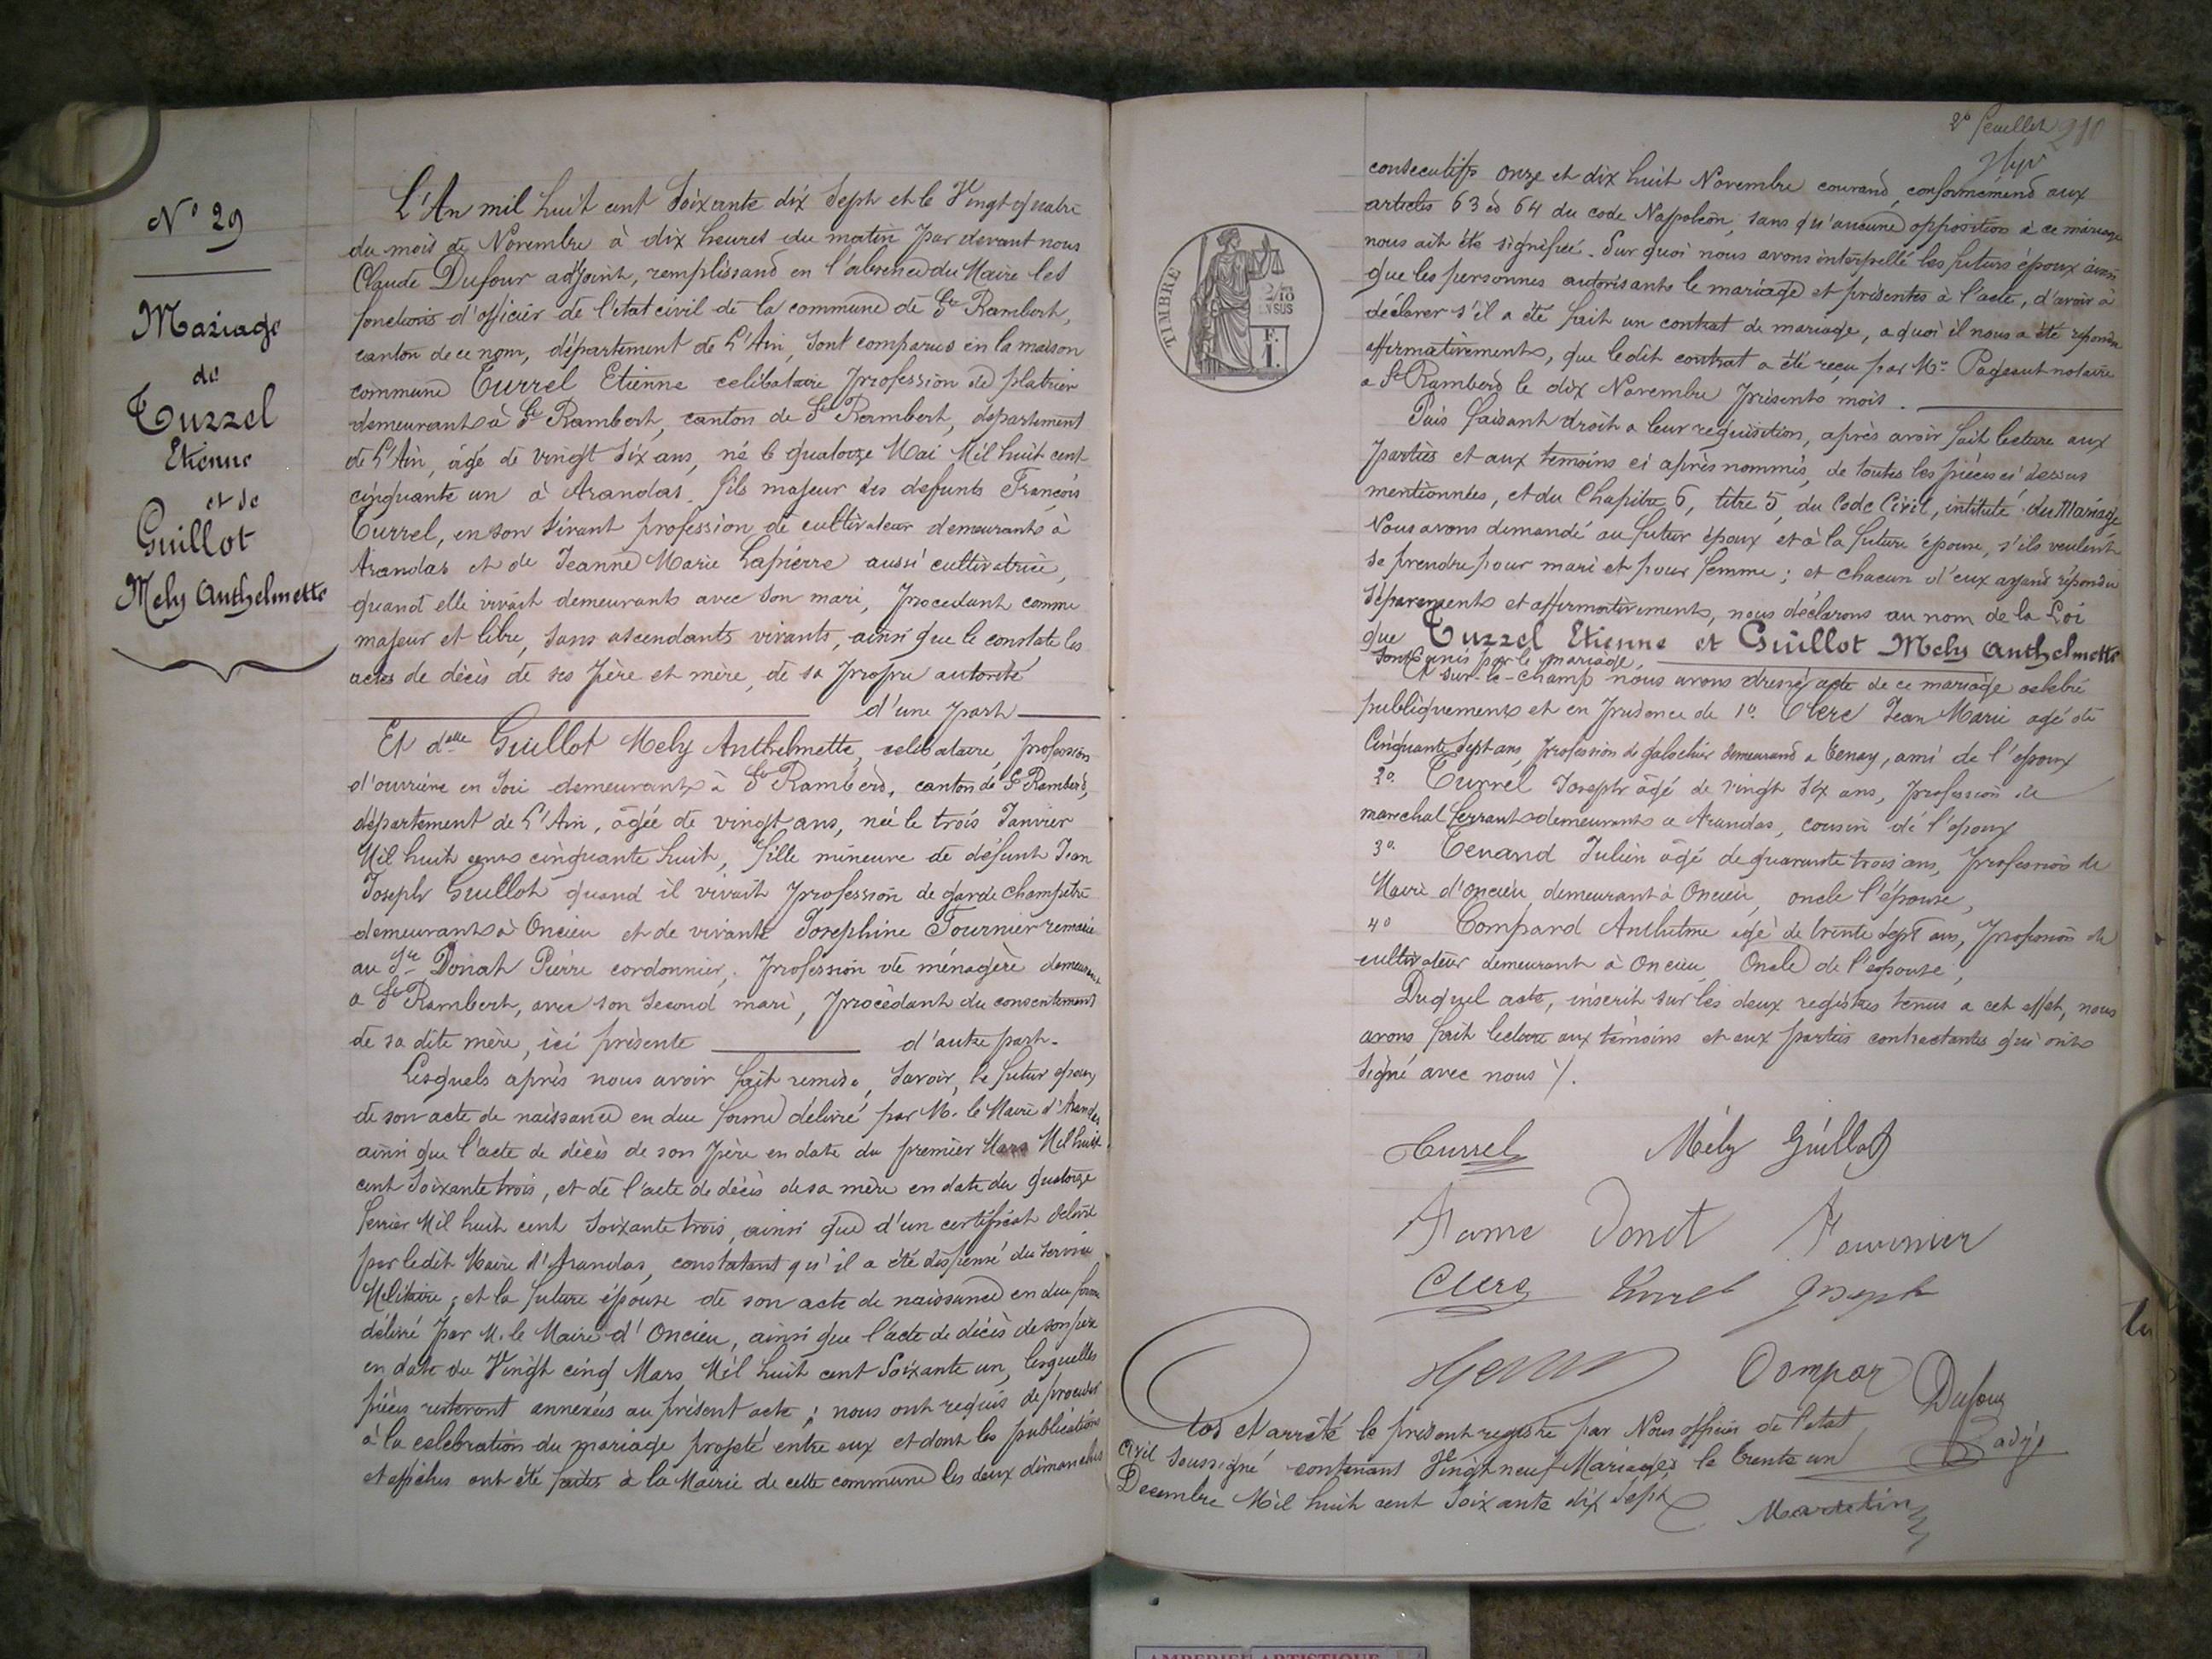 N° 29
Mariage
de
Turrel
Etienne
et de
Guillot
Mely Anthelmette
L'An mil huit cent Soixante dix Sept et le Vingt quatre
du mois de Novembre à dix heures du matin par devant nous
Claude Dufour adjoint, remplissant en l'absence du Maire les
fonctions d'officier de l'etat civil de la commune de St Rambert,
canton de ce nom, département de L'Ain, sont comparus en la maison
commune Turrel Etienne celibataire profession de platrier
demeurant à St Rambert, canton de St Rambert, departement
de L'Ain, âgé de vingt six ans, né le quatorze Mai Mil huit cent
cinquante un à Arandas. fils majeur des defunts François
Turrel, en son vivant profession de cultivateur demeurant à
Arandas et de Jeanne Marie Lapierre aussi cultivatrice,
quand elle vivait demeurant avec son mari, Procedant comme
majeur et libre, sans ascendants vivants, ainsi que le constate les
actes de décès de ses père et mère, de sa propre autorité
d'une part
Et delle Guillot Mely Anthelmette, celibataire, profession
d'ouvrière en soie demeurant à St Rambert, canton de St Rambert,
département de L'Ain, âgée de vingt ans, née le trois Janvier
Mil huit cent cinquante huit, fille mineure de défunt Jean
Joseph Guillot quand il vivait profession de garde champêtre
demeurant à Oncieu et de vivante Josephine Fournier remariée
au Sr Donat Pierre cordonnier, profession de ménagère demeurant
a St Rambert, avec son second mari, procèdant du consentement
de sa dite mère, ici présente d'autre part.
Lesquels après nous avoir fait remise, Savoir, le futur époux
de son acte de naissance en due forme délivré par M. le Maire d'Arandas
ainsi que l'acte de décès de son père en date du premier Mars Mil huit
cent soixante trois, et de l'acte de décès de sa mère en date du quatorze
fevrier Mil huit cent soixante trois, ainsi que d'un certificat delivré
par ledit Maire d'Arandas, constatant qu'il a été dispensé du service
Militaire; et la future épouse de son acte de naissance en due forme
délivré par M. le Maire d'Oncieu, ainsi que l'acte de décès de son père
en date du Vingt cinq Mars Mil huit cent Soixante un, lesquelles
pièces resteront annexées au présent acte; nous ont requis de proceder
à la celebration du mariage projeté entre eux et dont les publications
et affiches ont été faites à la Mairie de cette commune les deux dimanches
2e feuillet 210
TIMBRE
2/10
EN SUS
F.
1.
consecutifs onze et dix huit Novembre courant, conformément aux
articles 63 et 64 du code Napoléon, sans qu'aucune opposition à ce mariage
nous ait été signifiée. Sur quoi nous avons interpellé les futurs époux ainsi
que les personnes autorisants le mariage et présentes à l'acte, d'avoir à
déclarer s'il a été fait un contrat de mariage, a quoi il nous a été répondu
affirmativement, que ledit contrat a été reçu par Me Pageaut notaire
a St Rambert le dix Novembre présent mois.
Puis faisant droit a leur requisition, après avoir fait lecture aux
parties et aux temoins ci après nommés, de toutes les pièces ci dessus
mentionnées, et du Chapitre 6, titre 5, du Code Civil, intitulé du Mariage
Nous avons demandé au futur époux et à la future épouse, s'ils veulent
se prendre pour mari et pour femme; et chacun d'eux ayant répondu
séparement et affirmativement, nous déclarons au nom de la Loi
que Turrel Etienne et Guillot Mely Anthelmette
sont unis par le mariage.
Et sur-le-champ nous avons dressé acte de ce mariage celebré
publiquement et en présence de 1° Clerc Jean Marie agé de
Cinquante sept ans, profession de galochier demeurant a Tenay, ami de l'époux
2° Turrel Joseph âgé de vingt six ans, profession de
marechal ferrant demeurant a Arandas, cousin de l'époux
3° Tenand Julien âgé de quarante trois ans, profession de
Maire d'oncieu demeurant à Oncieu, oncle l'épouse,
4° Compard Anthelme agé de trente sept ans, profession de
cultivateur demeurant à Oncieu, Oncle de l'epouse,
Duquel acte, inscrit sur les deux registres tenus a cet effet, nous
avons fait lecture aux témoins et aux parties contractantes qui ont
signé avec nous /.
Turrel Mély Guillot
Fame Donat Fournier
Clerc Turrel Joseph
Compar Dufour
adj
Clos et arrêté le présent registre par Nous officier de l'etat
civil soussigné contenant Vingt neuf Mariages le trente un
Decembre Mil huit cent soixante dix sept
Martelin
AMBERIEU ARTISTIQUE